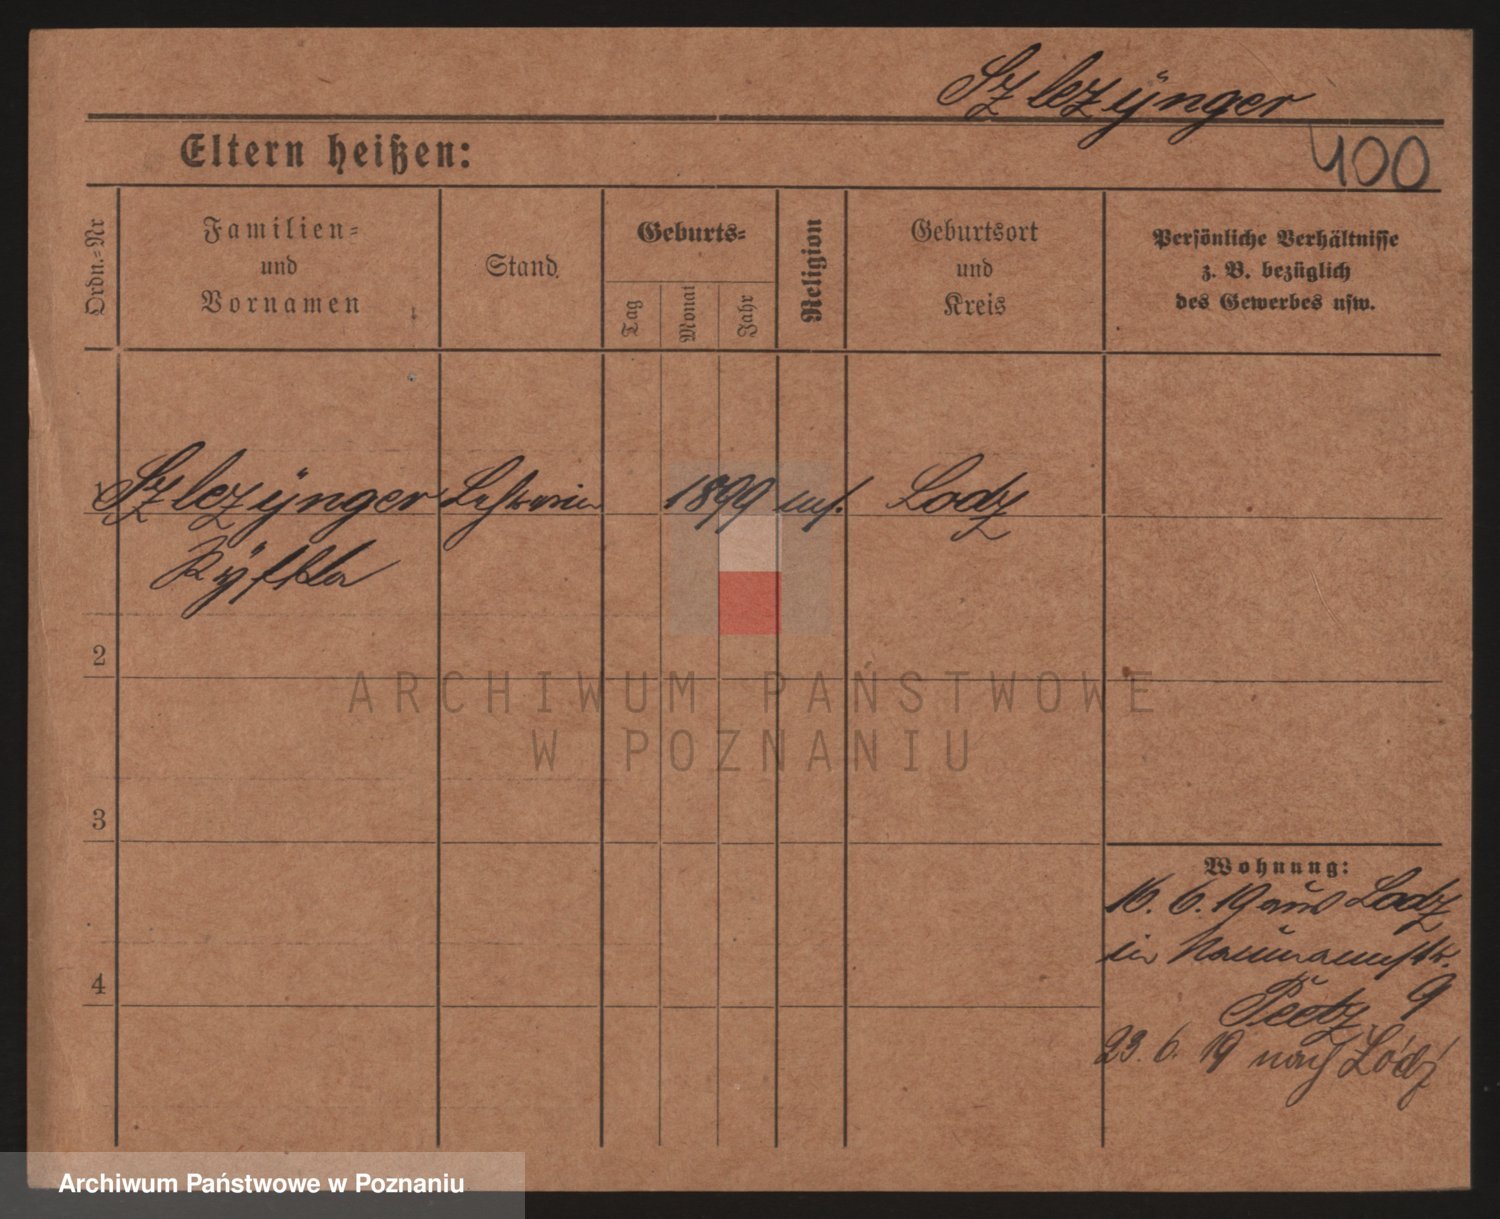 Szlezÿnger
Eltern heißen:
400
Ordn.-Nr
Familien- und Vornamen
Stand.
Geburts-
Tag
Monat
Jahr
Religion
Geburtsort und Kreis
Persönliche Verhältnisse
z. B. bezüglich
des Gewerbes usw.
1 Szlezÿnger 1899 Lodz
Rÿfkla
2
ARCHIWUM PAŃSTWOWE
W POZNANIU
3
Wohnung:
16. 6. 19 aus Lodz
in Naumannstr.
9
4
23. 6. 19 nach Łódź
Archiwum Państwowe w Poznaniu